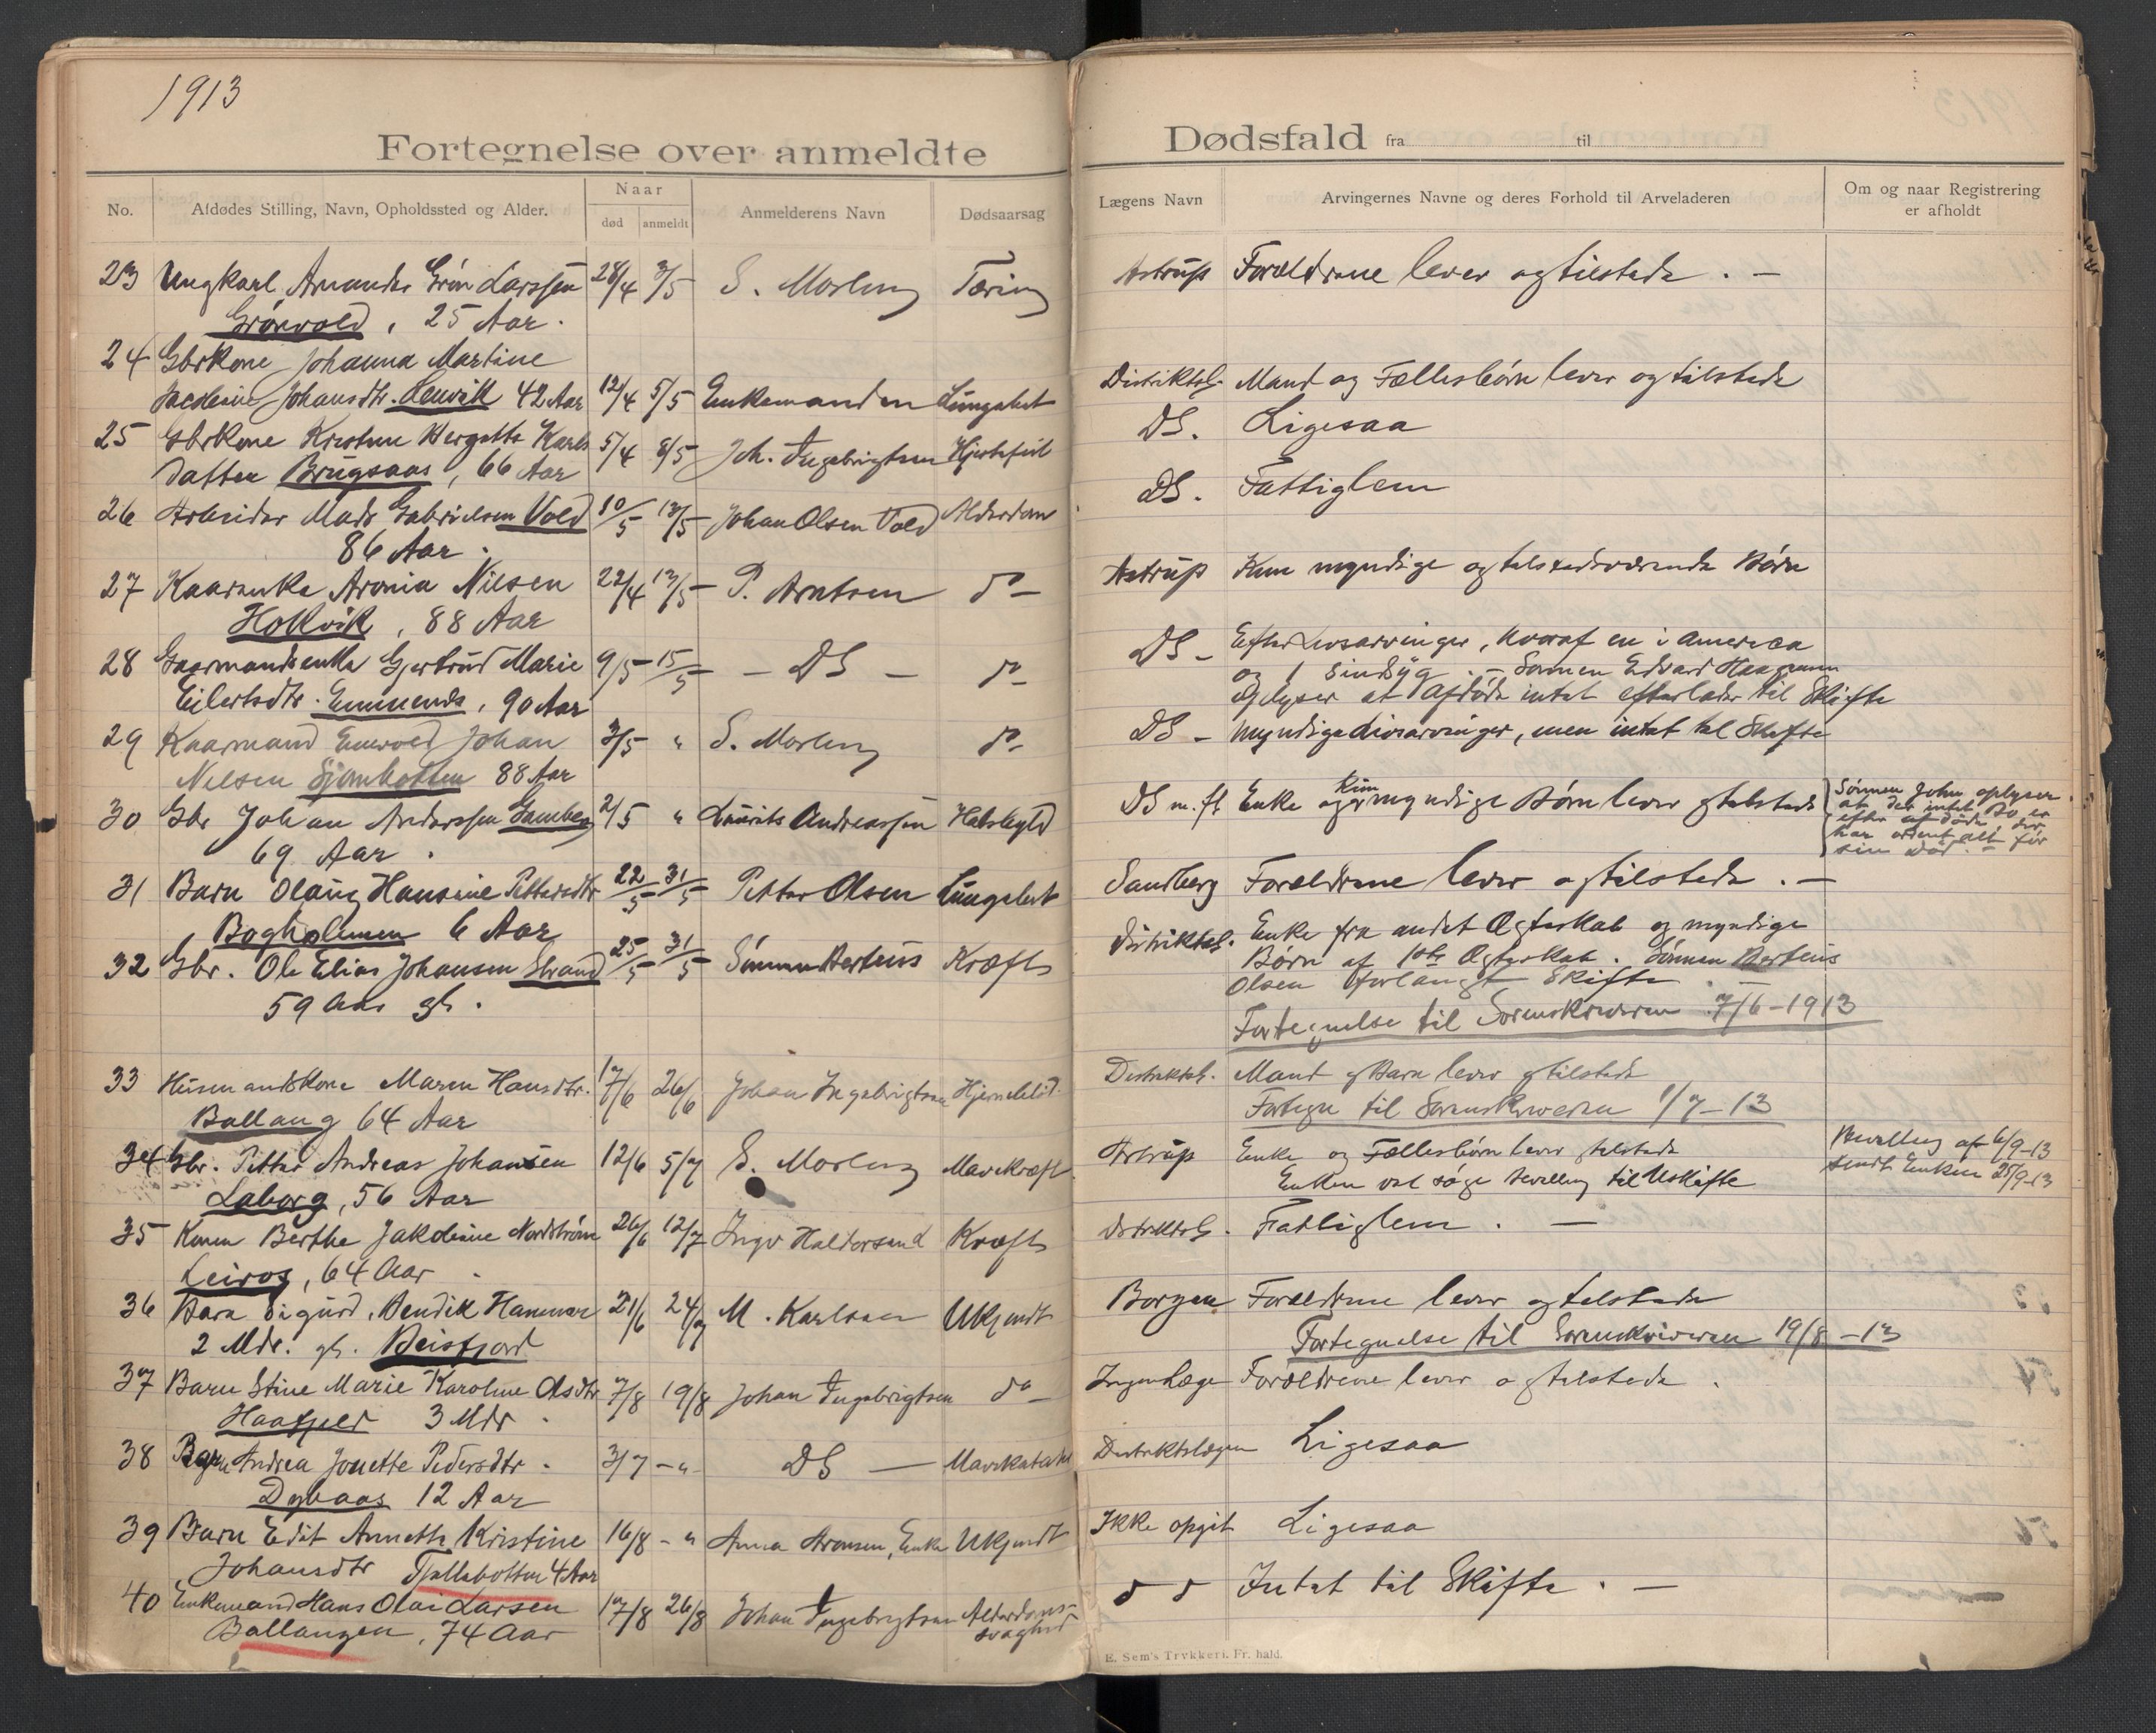 1913
Fortegnelse over anmeldte
Dødsfald fra til
No.
Afdødes Stilling, Navn, Opholdssted og Alder.
Naar
død
anmeldt
Anmelderens Navn
Dødsaarsag
Lægens Navn
Arvingernes Navne og deres Forhold til Arveladeren
Om og naar Registrering
er afholdt
23 Ungkarl Amandus Grøn Larssen 28/4 3/5 S. Morling Tæring Astrup Forældrene lever og tilstede . —
Grønvold, 25 Aar.
24 Gbrkone Johanna Martine
Jacobine Johansdtr. Leuvik 42 Aar 12/4 5/5 Enkemanden Lungebet Distriktsl. Mand og Fællesbørn lever og tilstede
25 Gbrkone Kristine Bergette Karls 5/4 8/5 Joh. Ingebrigtsen Hjertefeil DS. Ligesaa
datter Brugsaas, 66 Aar
26 Arbeider Mads Gabrielsen Vold 10/5 13/5 Johan Olsen Vold Alderdom DS. Fattiglem
86 Aar.
27 Kaarenke Aronia Nilsen 22/4 13/5 P. Arntsen do — Astrup Kun myndige og tilstedeværende Børn
Holkvik, 88 Aar
28 Gaarmandsenke Gjertrud Marie 9/5 15/5 — DS — do — DS — Efter Livsarvinger, hvoraf en i America
Eilertsdtr. Emmenes, 90 Aar
og 1 sindsyg. — Sønnen Edvard Haagensen
oplyser at Afdøde intet efterlader til Skifte
29 Kaarmand Enevold Johan 3/5 " S. Morling do — DS — Myndige Livsarvinger, men intet til Skifte
Nilsen Sjombotten 88 Aar
30 Gbr Johan Anderssen 2/5 " Laurits Andreassen Halsbyld DS m. fl. Enke og Kun myndige Børn lever og tilstede
69 Aar.
Sønnen John oplyser
at der intet Bo er
efter afdøde der
har ordent alt før
sin Død. —
31 Barn Olaug Hansine Pettersdtr 22/5 31/5 Petter Olsen Lungebet Sandberg Forældrene lever og tilstede . —
Bogholmen 6 Aar
32 Gbr. Ole Elias Johansen Strand 25/5 31/5 Sønnen Berteus Kræft Distriktsl. Enke fra andet Ægteskab og myndige
59 Aar gl.
Børn af 1ste Ægteskab. Sønnen Berteus
Olsen forlangt Skifte . —
Fortegnelse til Sorenskriveren 7/6-1913
33 Husmandskone Maren Hansdtr. 17/6 26/6 Johan Ingebrigtsen Hjerneblød. Distriktsl. Mand og Barn lever og tilstede
Ballang 64 Aar
Fortegn til Sorenskriveren 1/7-13
34 Gbr. Petter Andreas Johansen 12/6 5/7 S. Morling Mavekræft. Astrup Enke og Fællesbørn lever og tilstede
Laberg, 56 Aar
Enken vil søge Bevilling til Uskifte
Bevilling af 6/9-13
sendt Enken 25/9-13
35 Konen Berthe Jakobine Nordstrøm 26/6 12/7 Ingv Haldorsen Kræft Distriktsl. Fattiglem . —
Leiros, 64 Aar.
36 Barn Sigurd Bendik Hammer 21/6 24/7 M. Karlsen Ukjendt Borgen Forældrene lever og tilstede
2 Mdr. gl. Beisfjord
Fortegnelse til Sorenskriveren 19/8-13
37 Barn Stine Marie Karoline Olsdtr 7/8 19/8 Johan Ingebrigtsen do — Ingen Læge Forældrene lever og tilstede.
Haafjeld 3 Mdr.
38 Barn Andrea Jonette Pedersdtr. 3/7 — " — DS — Mavekatarh Distriktslægen Ligesaa
Dybaas 12 Aar
39 Barn Edit Annette Kristine 16/8 — " Anna Aronsen, Enke Ukjendt Ikke opgit Ligesaa
Johansdtr Fjellbotten 4 Aar
40 Enkemand Hans Olai Larsen 17/8 26/8 Johan Ingebrigtsen Alderdoms- d d Intet til Skifte . —
svaghed
Ballangen, 74 Aar
E. Sem's Trykkeri. Fr.hald.